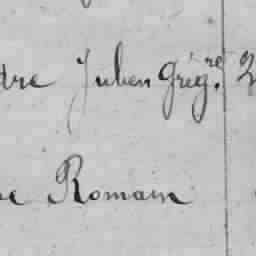 dre Julien Grég.re 2
ne Romain